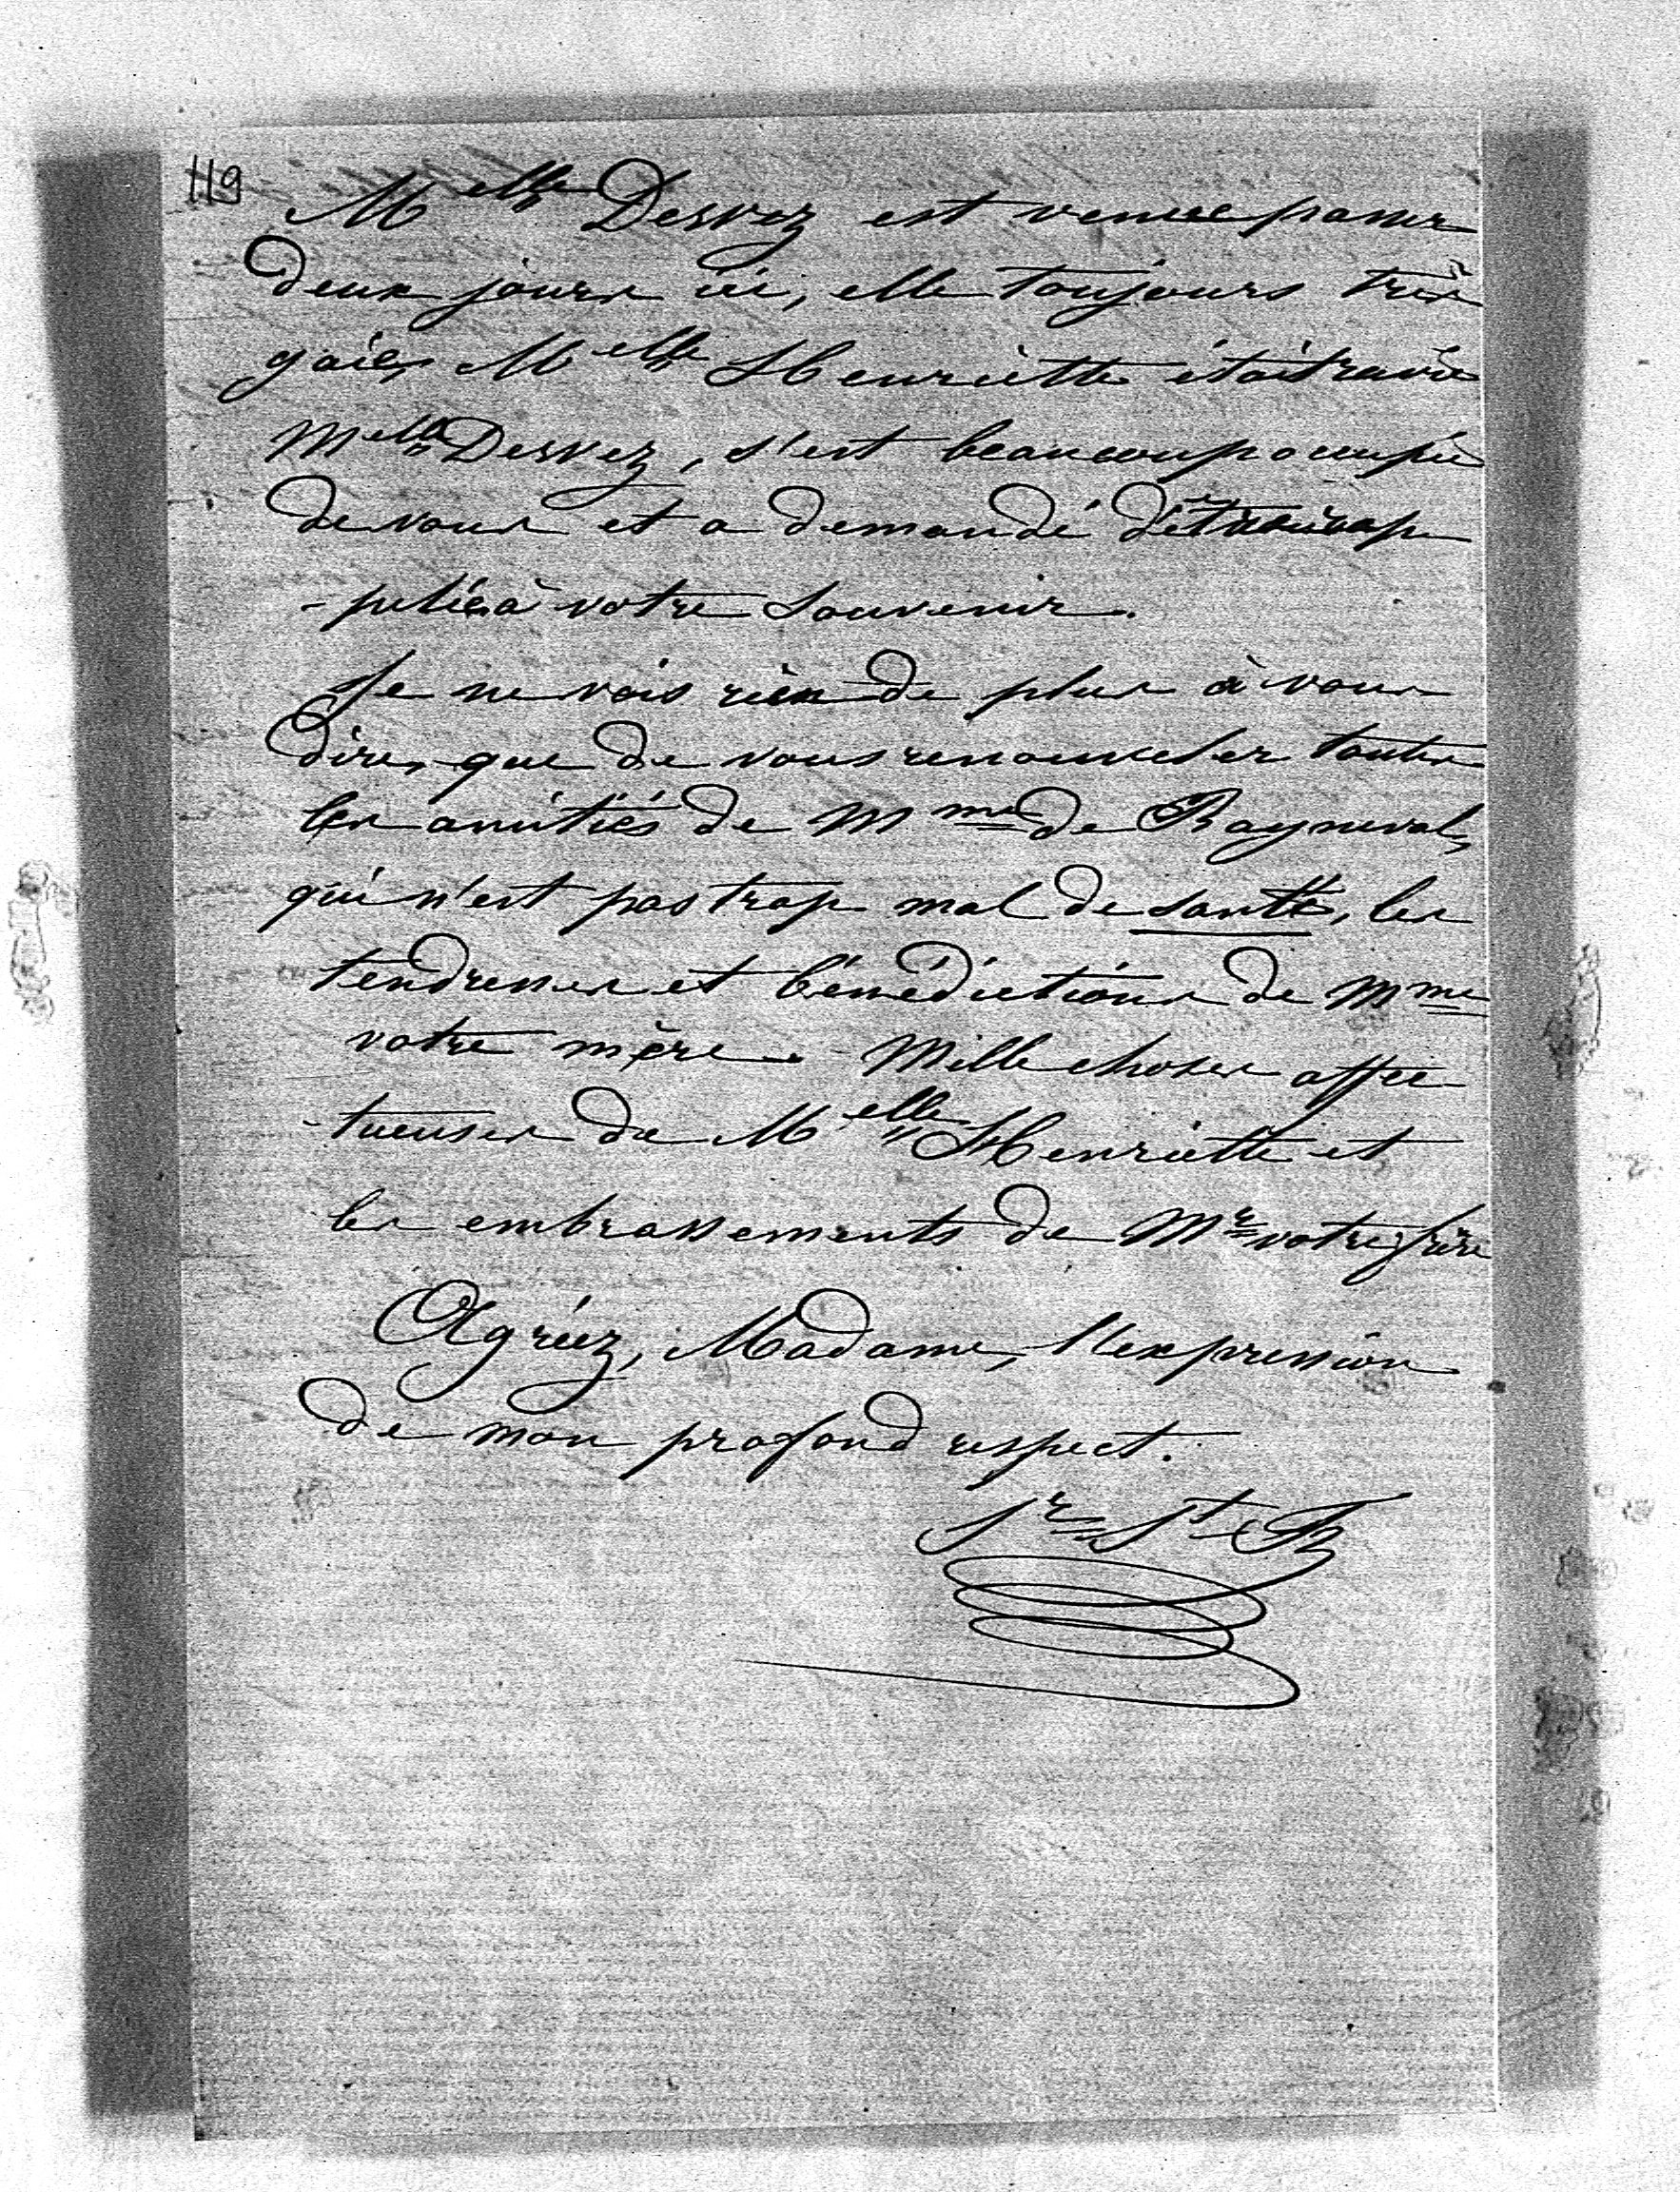 119
Melle Dervez est venue passer
deux jours ici, elle toujours très
gaie, Melle Henriette était ravie
Melle Dervez, s'est beaucoup occupée
de vous et a demandé d'être rap
-pelée à votre souvenir.
Je ne vois rien de plus à vous
dire, que de vous renouveler toutes
les amitiés de Mme de Rayneval,
qui n'est pas trop mal de santé, les
tendresses et bénédictions de Mme
votre mère. Mille choses affec
-tueuses de Melle Henriette et
les embrassements de Mr votre frère
Agréez, Madame, l'expression
de mon profond respect.
Sr St